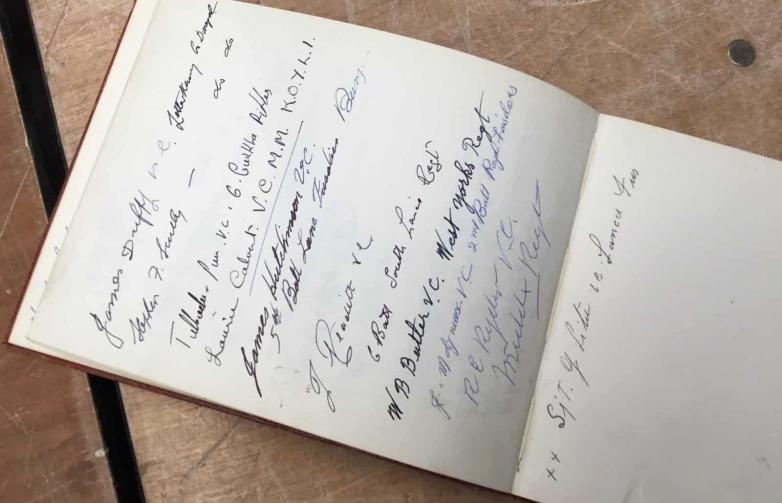 James Duffy V.C. Letterkenny Co Donegal
Stephen F. — do do
Tulbahadur Pun. V.C. 6. Gurkha Rifles
Laurie Calvert. V.C. M.M. K.O.Y.L.I.
James Hutchinson V.C.
5th Batt Lanc Fusiliers Bury.
J Readitt VC
6 Batt South Lancs Regt
W B Butler V.C. West Yorks Regt
J. Molyneux VC 2nd Batt Royal Fusiliers
R E Ryder V.C.
Middlx Regt
x x Sjt. J Lister VC Lancs Fus